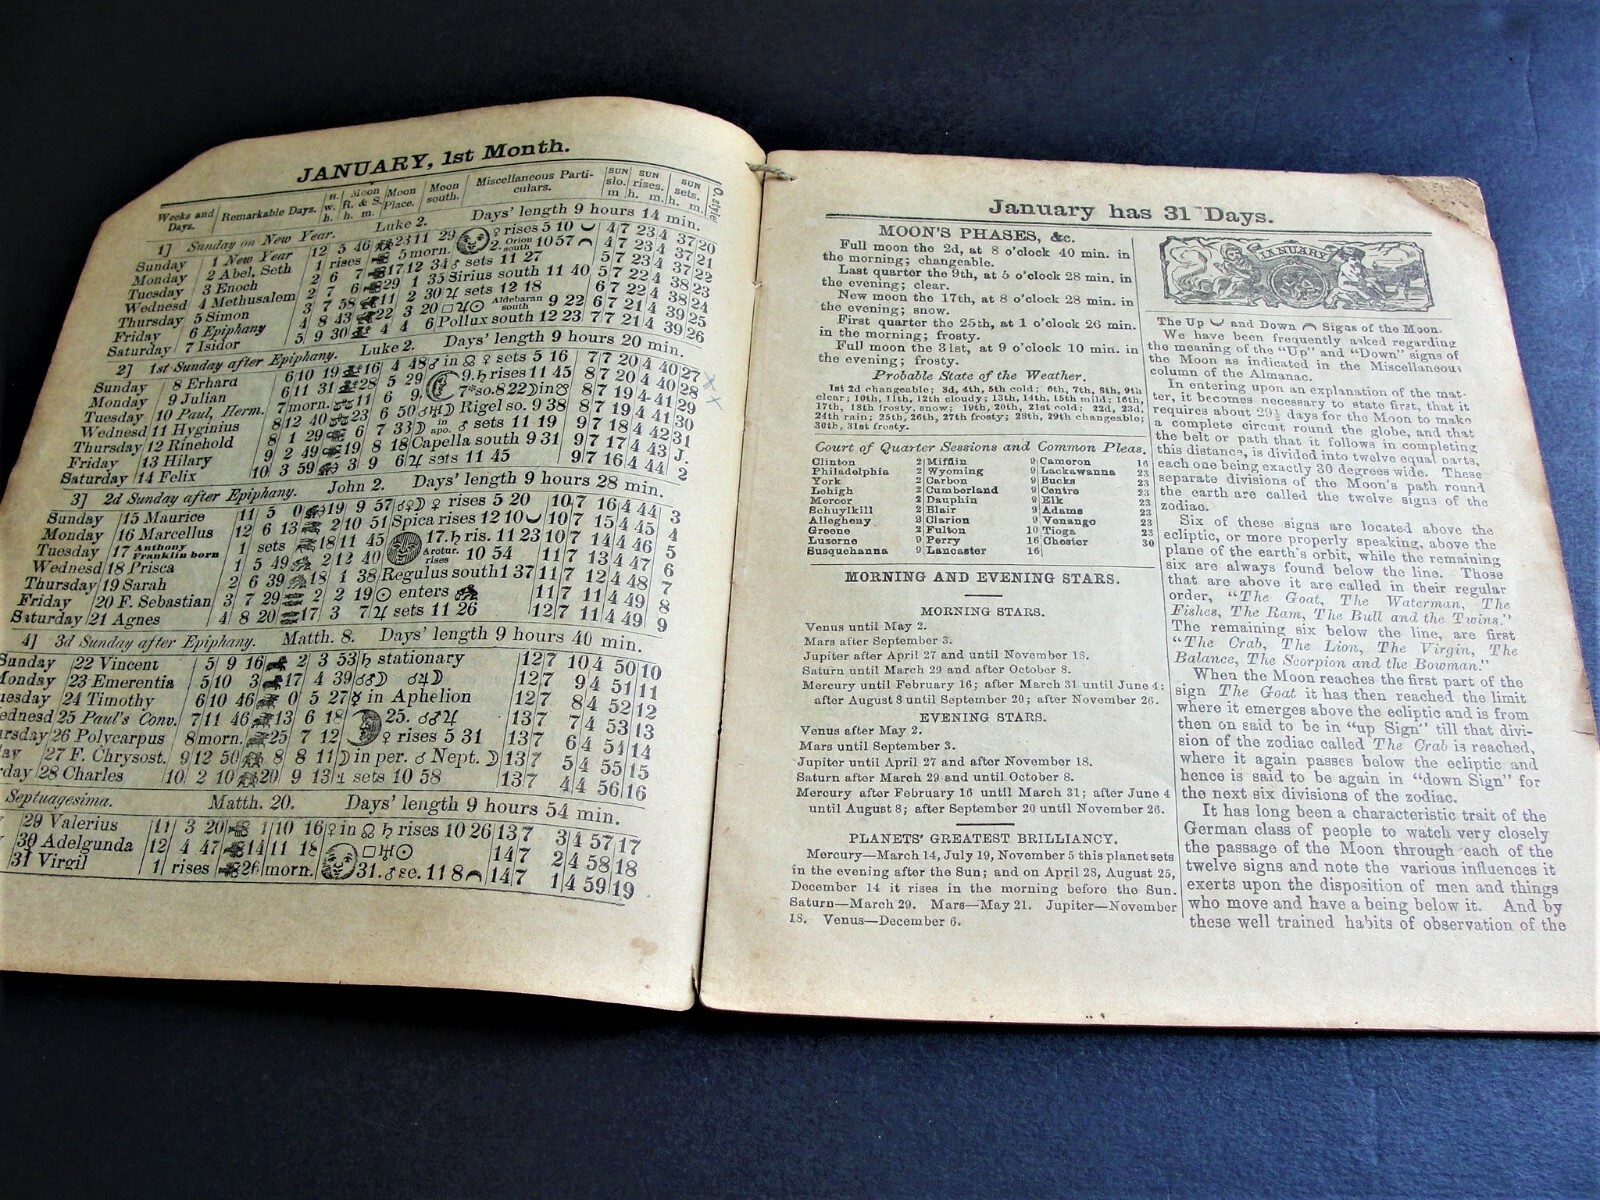 JANUARY, 1st Month.
Weeks and Days. Remarkable Days. Moon R. & S. h. m. Moon Place. Moon south. Miscellaneous Particulars. SUN slo. m SUN rises. h. m. SUN sets. h. m. O. style
1] Sunday on New Year. Luke 2. Days' length 9 hours 14 min.
Sunday 1 New Year 12 5 46 23 11 29 ♀ rises 5 10 4 7 23 4 37 20
Monday 2 Abel, Seth 1 rises 5 morn. 2. Orion south 10 57 4 7 23 4 37 21
Tuesday 3 Enoch 2 6 7 17 12 34 ♂ sets 11 27 5 7 23 4 37 22
Wednesd 4 Methusalem 2 7 6 29 1 35 Sirius south 11 40 5 7 22 4 38 23
Thursday 5 Simon 3 7 58 11 2 30 ♃ sets 12 18 6 7 22 4 38 24
Friday 6 Epiphany 4 8 43 22 3 20 □♃☉ Aldebaran south 9 22 6 7 21 4 39 25
Saturday 7 Isidor 5 9 30 4 4 6 Pollux south 12 23 7 7 21 4 39 26
2] 1st Sunday after Epiphany. Luke 2. Days' length 9 hours 20 min.
Sunday 8 Erhard 6 10 19 16 4 48 ♂ in ☊ ♀ sets 5 16 7 7 20 4 40 27
Monday 9 Julian 6 11 31 28 5 29 9. ♄ rises 11 45 8 7 20 4 40 28
Tuesday 10 Paul, Herm. 7 morn. 11 6 9 7*so. 8 22 ☽ in ☋ 8 7 19 4 41 29
Wednesd 11 Hyginius 8 12 40 23 6 50 ☌♅☽ Rigel so. 9 38 8 7 19 4 41 30
Thursday 12 Rinehold 8 1 29 6 7 33 ☽ in apo. ♂ sets 11 19 9 7 18 4 42 31
Friday 13 Hilary 9 2 49 19 8 18 Capella south 9 31 9 7 17 4 43 J.
Saturday 14 Felix 10 3 59 3 9 6 ♃ sets 11 45 9 7 16 4 44 2
3] 2d Sunday after Epiphany. John 2. Days' length 9 hours 28 min.
Sunday 15 Maurice 11 5 0 19 9 57 ☌☿☽ ♀ rises 5 20 10 7 16 4 44 3
Monday 16 Marcellus 12 6 13 2 10 51 Spica rises 12 10 10 7 15 4 45 4
Tuesday 17 Anthony Franklin born 1 sets 18 11 45 17. ♄ ris. 11 23 10 7 14 4 46 5
Wednesd 18 Prisca 1 5 49 2 12 40 Arctur. rises 10 54 11 7 13 4 47 6
Thursday 19 Sarah 2 6 39 18 1 38 Regulus south 1 37 11 7 12 4 48 7
Friday 20 F. Sebastian 3 7 29 2 2 19 ☉ enters 11 7 11 4 49 8
Saturday 21 Agnes 4 8 20 17 3 7 ♃ sets 11 26 12 7 11 4 49 9
4] 3d Sunday after Epiphany. Matth. 8. Days' length 9 hours 40 min.
Sunday 22 Vincent 5 9 16 2 3 53 ♄ stationary 12 7 10 4 50 10
Monday 23 Emerentia 5 10 3 17 4 39 ☌♂☽ ☌♃☽ 12 7 9 4 51 11
uesday 24 Timothy 6 10 46 0 5 27 ☿ in Aphelion 12 7 8 4 52 12
ednesd 25 Paul's Conv. 7 11 46 13 6 18 25. ☌♂♃ 13 7 7 4 53 13
ursday 26 Polycarpus 8 morn. 25 7 12 ♀ rises 5 31 13 7 6 4 54 14
ay 27 F. Chrysost. 9 12 50 8 8 11 ☽ in per. ☌ Nept. ☽ 13 7 5 4 55 15
day 28 Charles 10 2 10 20 9 13 ♃ sets 10 58 13 7 4 4 56 16
Septuagesima. Matth. 20. Days' length 9 hours 54 min.
29 Valerius 11 3 20 1 10 16 ♀ in ☊ ♄ rises 10 26 13 7 3 4 57 17
30 Adelgunda 12 4 47 14 11 18 □♅☉ 14 7 2 4 58 18
31 Virgil 1 rises 26 morn. 31. ♂ se. 11 8 14 7 1 4 59 19
January has 31 Days.
MOON'S PHASES, &c.
Full moon the 2d, at 8 o'clock 40 min. in
the morning; changeable.
Last quarter the 9th, at 5 o'clock 28 min. in
the evening; clear.
New moon the 17th, at 8 o'clock 28 min. in
the evening; snow.
First quarter the 25th, at 1 o'clock 26 min.
in the morning; frosty.
Full moon the 31st, at 9 o'clock 10 min. in
the evening; frosty.
Probable State of the Weather.
1st 2d changeable; 3d, 4th, 5th cold; 6th, 7th, 8th, 9th
clear; 10th, 11th, 12th cloudy; 13th, 14th, 15th mild; 16th,
17th, 18th frosty, snow; 19th, 20th, 21st cold; 22d, 23d,
24th rain; 25th, 26th, 27th frosty; 28th, 29th changeable;
30th, 31st frosty.
Court of Quarter Sessions and Common Pleas.
Clinton 2 Mifflin 9 Cameron 16
Philadelphia 2 Wyoming 9 Lackawanna 23
York 2 Carbon 9 Bucks 23
Lehigh 2 Cumberland 9 Centre 23
Mercer 2 Dauphin 9 Elk 23
Schuylkill 2 Blair 9 Adams 23
Allegheny 2 Clarion 9 Venango 23
Greene 2 Fulton 10 Tioga 23
Luzerne 9 Perry 16 Chester 30
Susquehanna 9 Lancaster 16
MORNING AND EVENING STARS.
MORNING STARS.
Venus until May 2.
Mars after September 3.
Jupiter after April 27 and until November 18.
Saturn until March 29 and after October 8.
Mercury until February 16; after March 31 until June 4;
after August 8 until September 20; after November 26.
EVENING STARS.
Venus after May 2.
Mars until September 3.
Jupiter until April 27 and after November 18.
Saturn after March 29 and until October 8.
Mercury after February 16 until March 31; after June 4
until August 8; after September 20 until November 26.
PLANETS' GREATEST BRILLIANCY.
Mercury—March 14, July 19, November 5 this planet sets
in the evening after the Sun; and on April 28, August 25,
December 14 it rises in the morning before the Sun.
Saturn—March 29. Mars—May 21. Jupiter—November
18. Venus—December 6.
JANUARY
The Up ◡ and Down ◠ Signs of the Moon.
We have been frequently asked regarding
the meaning of the "Up" and "Down" signs of
the Moon as indicated in the Miscellaneous
column of the Almanac.
In entering upon an explanation of the mat-
ter, it becomes necessary to state first, that it
requires about 29½ days for the Moon to make
a complete circuit round the globe, and that
the belt or path that it follows in completing
this distance, is divided into twelve equal parts,
each one being exactly 30 degrees wide. These
separate divisions of the Moon's path round
the earth are called the twelve signs of the
zodiac.
Six of these signs are located above the
ecliptic, or more properly speaking, above the
plane of the earth's orbit, while the remaining
six are always found below the line. Those
that are above it are called in their regular
order, "The Goat, The Waterman, The
Fishes, The Ram, The Bull and the Twins."
The remaining six below the line, are first
"The Crab, The Lion, The Virgin, The
Balance, The Scorpion and the Bowman."
When the Moon reaches the first part of the
sign The Goat it has then reached the limit
where it emerges above the ecliptic and is from
then on said to be in "up Sign" till that divi-
sion of the zodiac called The Crab is reached,
where it again passes below the ecliptic and
hence is said to be again in "down Sign" for
the next six divisions of the zodiac.
It has long been a characteristic trait of the
German class of people to watch very closely
the passage of the Moon through each of the
twelve signs and note the various influences it
exerts upon the disposition of men and things
who move and have a being below it. And by
these well trained habits of observation of the